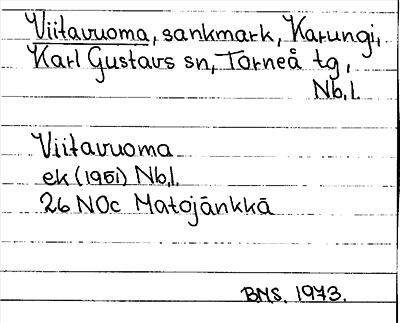 Viitavuoma, sankmark, Karungi,
Karl Gustavs sn, Torneå tg,
Nb.l.
Viitavuoma
ek (1951) Nb.l.
26 NOc Matojänkkä
BMS. 1973.